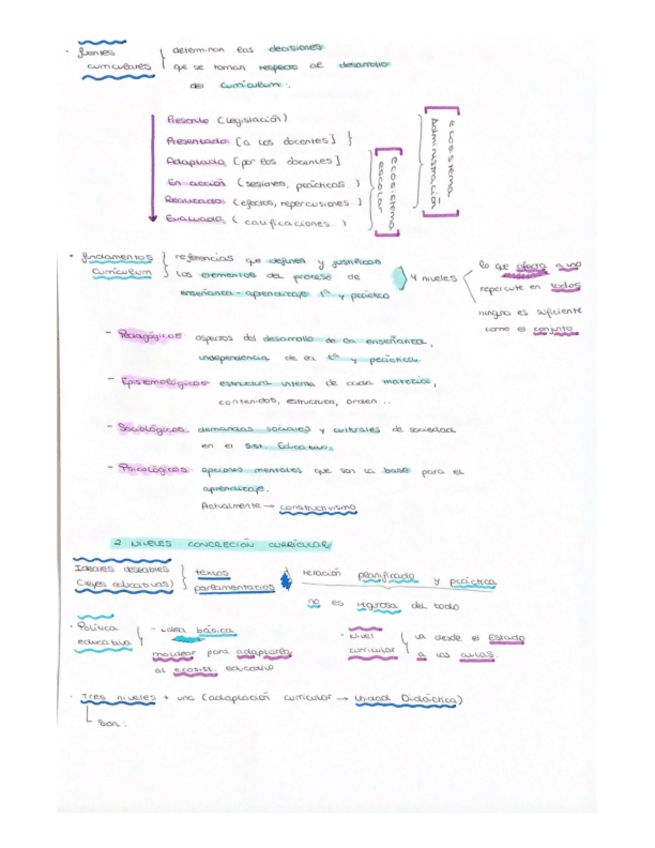 · fuentes curriculares } determinan las decisiones
que se toman respecto al desarrollo
del curriculum.
Prescrito (legislación)
Presentado [a los docentes]
Adaptado [por los docentes]
En acción (sesiones, prácticas)
Realizado (efectos, repercusiones)
Evaluado (calificaciones)
[ecosistema escolar]
[ecosistema Administración]
· fundamentos curriculum } referencias que definen y justifican
los elementos del proceso de
enseñanza-aprendizaje tª y práctico
4 niveles
lo que afecta a uno
repercute en todos
ninguno es suficiente
como el conjunto
- Pedagógicos: aspectos del desarrollo de la enseñanza,
independencia de la tª y práctica.
- Epistemológicos: estructura interna de cada materia,
contenidos, estructura, orden...
- Sociológicos: demandas sociales y culturales de sociedad
en el Sist. Educativo.
- Psicológicos: opciones mentales que son la base para el
aprendizaje.
Actualmente → constructivismo
2 NIVELES CONCRECIÓN CURRÍCULAR
Ideales deseables
(leyes educativas) } textos
parlamentarios
relación planificado y práctica
no es rigurosa del todo
· Política educativa { - idea básica
moldear para adaptarla
al ecosist. educativo
· Nivel curricular { va desde el Estado
a las aulas.
· Tres niveles + uno (adaptación curricular → Unidad Didáctica)
Son: